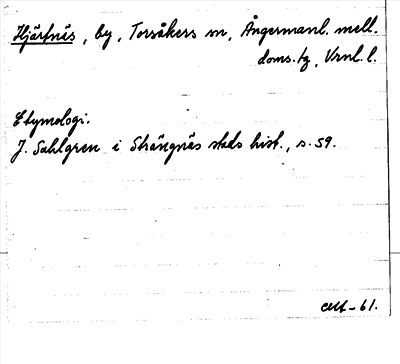 Hjärtnäs, by, Torsåkers sn, Ångermanl. mell.
doms.tg, Vrnl. l.
Etymologi.
J. Sahlgren i Strängnäs stads hist., s. 59.
-61.